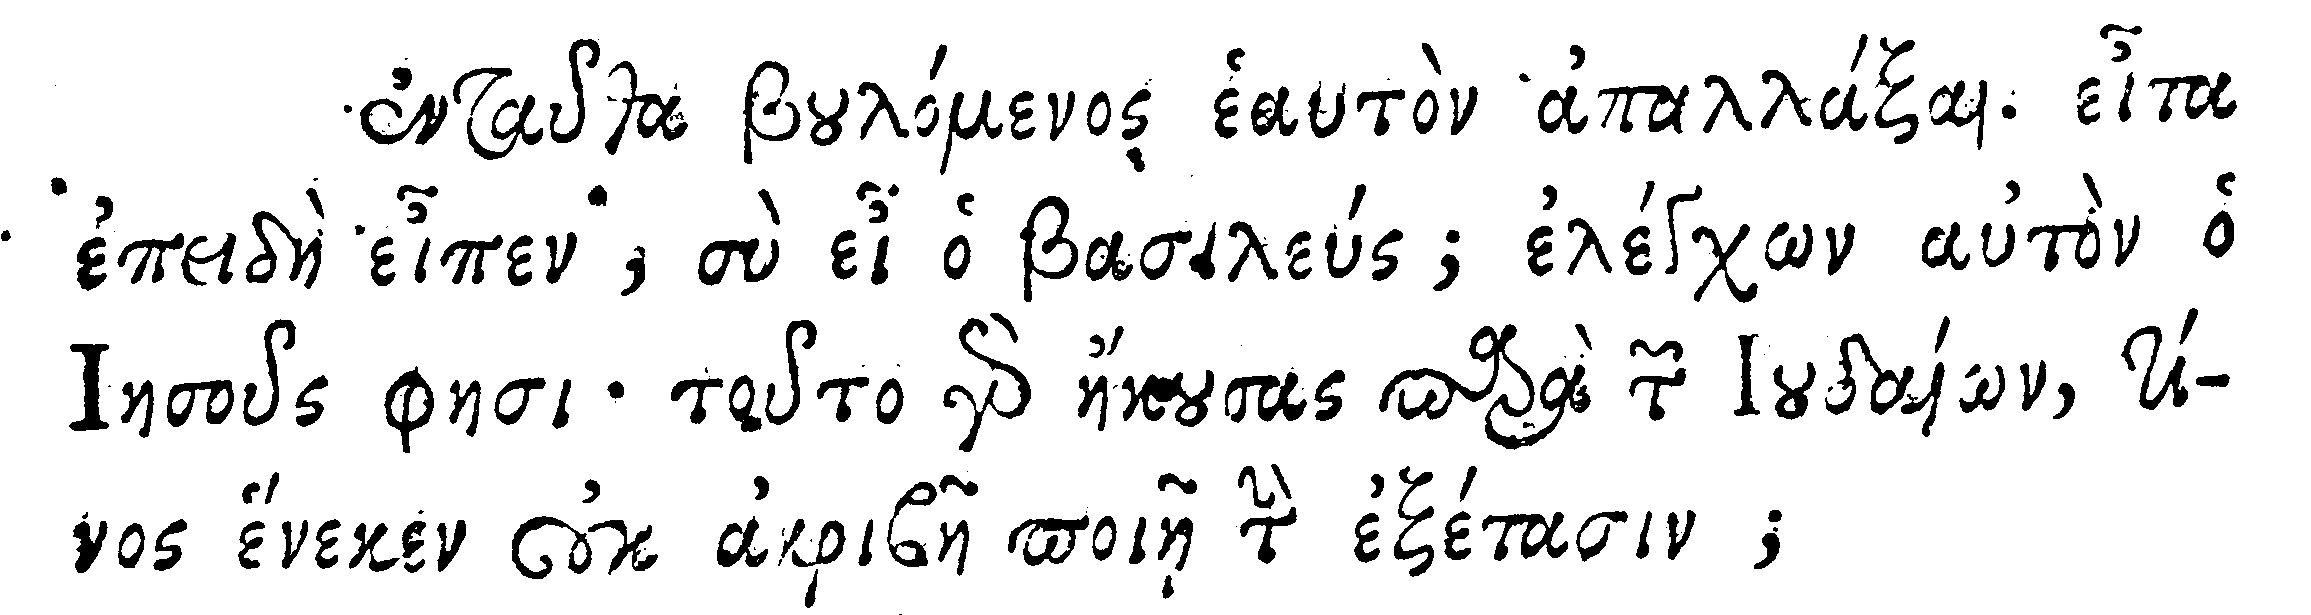 ἐνταῦθα βουλόμενος ἑαυτὸν ἀπαλλάξαι. εἶτα
ἐπειδὴ εἶπεν, σὺ εἶ ὁ βασιλεύς; ἐλέγχων αὐτὸν ὁ
Ιησοῦς φησι· τοῦτο γὰρ ἤκουσας παρὰ τῶν Ιουδαίων, τί-
νος ἕνεκεν οὐκ ἀκριβῆ ποιῇ τὴν ἐξέτασιν;